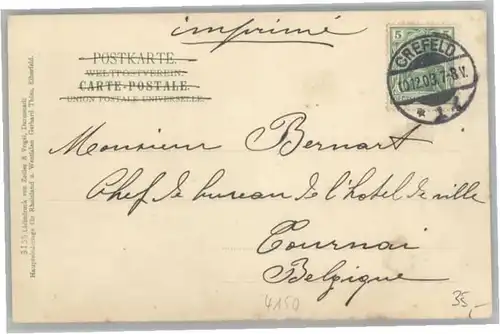 imprimé
5
POSTKARTE.
WELTPOSTVEREIN.
CARTE-POSTALE.
UNION POSTALE UNIVERSELLE.
CREFELD
10.12.03.7-8.V.
* 1 z
Monsieur Bernart
Chef de bureau de l'hotel de ville
Tournai
Belgique
4150
35,-
5155 Lichtdruck von Zedler & Vogel, Darmstadt
Hauptniederlage für Rheinland u. Westfalen Gerhard Thien, Elberfeld.